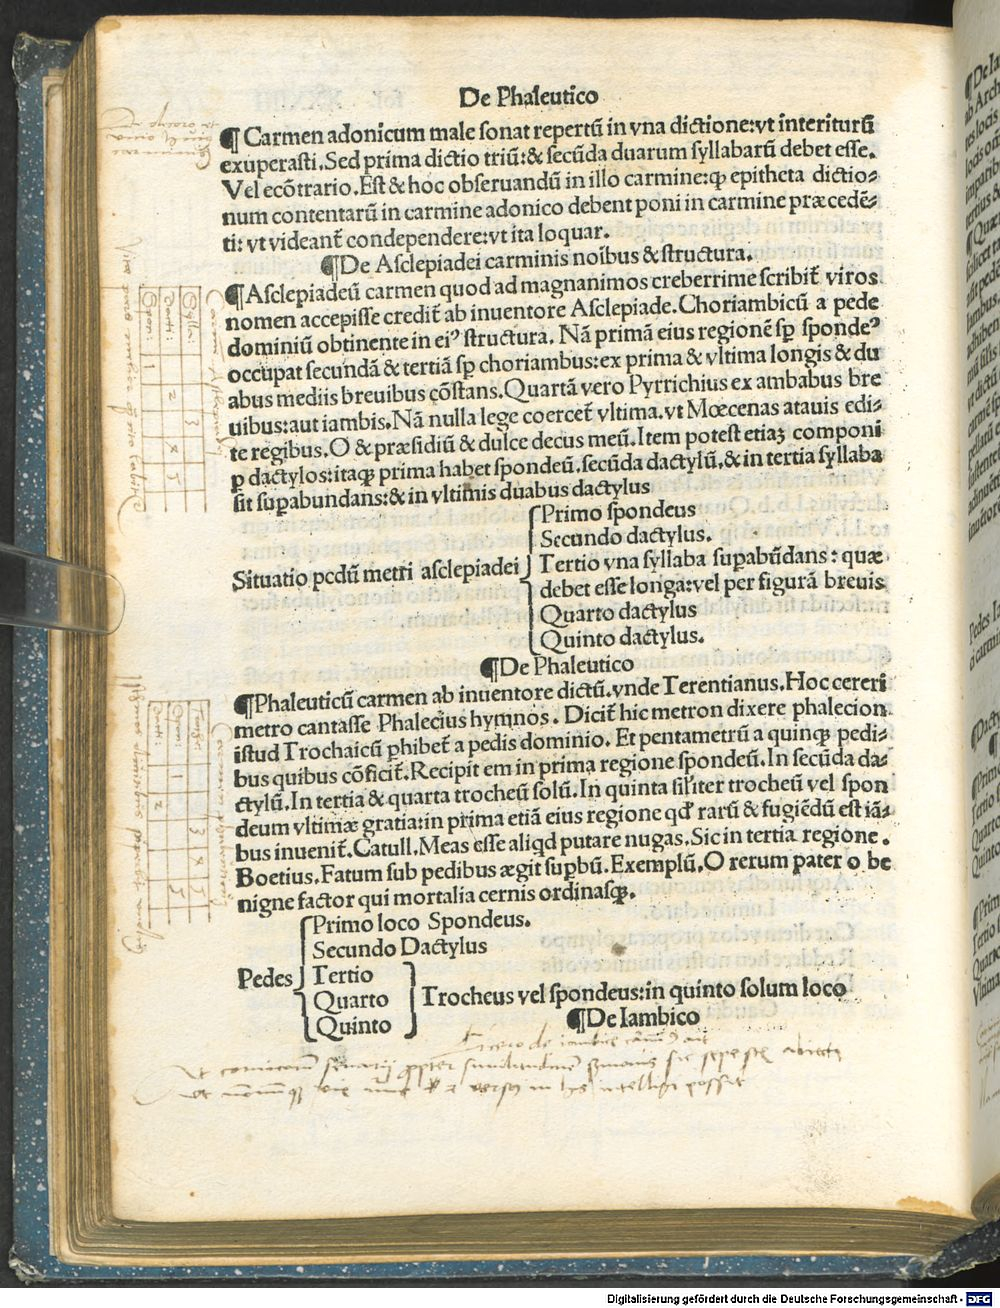 De Phaleutico
¶ Carmen adonicum male sonat repertū in vna dictione:vt interiturū
exuperasti.Sed prima dictio triū:& secūda duarum syllabarū debet esse.
Vel ecōtrario.Est & hoc obseruandū in illo carmine:ꝙ epitheta dictio⸗
num contentarū in carmine adonico debent poni in carmine præcedē⸗
ti: vt videant̄ condependere:vt ita loquar.
¶De Asclepiadei carminis noībus & structura.
¶Asclepiadeū carmen quod ad magnanimos creberrime scribit̄ viros
nomen accepisse credit̄ ab inuentore Asclepiade.Choriambicū a pede
dominiū obtinente in eiꝰ structura. Nā primā eius regionē sꝑ spondeꝰ
occupat secundā & tertiā sꝑ choriambus:ex prima & vltima longis & du
abus mediis breuibus cōstans.Quartā vero Pyrrichius ex ambabus bre
uibus:aut iambis.Nā nulla lege coercet̄ vltima.vt Mœcenas atauis edi⸗
te regibus.O & præsidiū & dulce decus meū.Item potest etiaꝫ componi
ꝑ dactylos:itaꝗ prima habet spondeū.secūda dactylū.& in tertia syllaba
sit suꝑabundans:& in vltimis duabus dactylus
Situatio pedū metri asclepiadei
Primo spondeus
Secundo dactylus.
Tertio vna syllaba suꝑabūdans: quæ
debet esse longa:vel per figurā breuis
Quarto dactylus
Quinto dactylus.
¶De Phaleutico
¶Phaleuticū carmen ab inuentore dictū.vnde Terentianus.Hoc cereri
metro cantasse Phalecius hymnos. Dicit̄ hic metron dixere phalecion
istud Trochaicū ꝓhibet̄ a pedis dominio. Et pentametrū a quinꝗ pedi⸗
bus quibus cōficit̄.Recipit em in prima regione spondeū.In secūda da⸗
ctylū.In tertia & quarta trocheū solū.In quinta siłiter trocheū vel spon
deum vltimæ gratia:in prima etiā eius regione qd' rarū & fugiēdū est iā⸗
bus inuenit̄.Catull.Meas esse aliqd putare nugas.Sic in tertia regione.
Boetius.Fatum sub pedibus ægit suꝑbū.Exemplū.O rerum pater o be
nigne factor qui mortalia cernis ordinasꝗ.
Pedes
Primo loco Spondeus.
Secundo Dactylus
Tertio
Quarto
Quinto
Trocheus vel spondeus:in quinto solum loco
¶De Iambico
Cicero de
Ut comicorum senarii propter similitudinem sermonis sic sepe st abiecti
ut nonnunquam vix in his intelligi possit
Digitalisierung gefördert durch die Deutsche Forschungsgemeinschaft - DFG